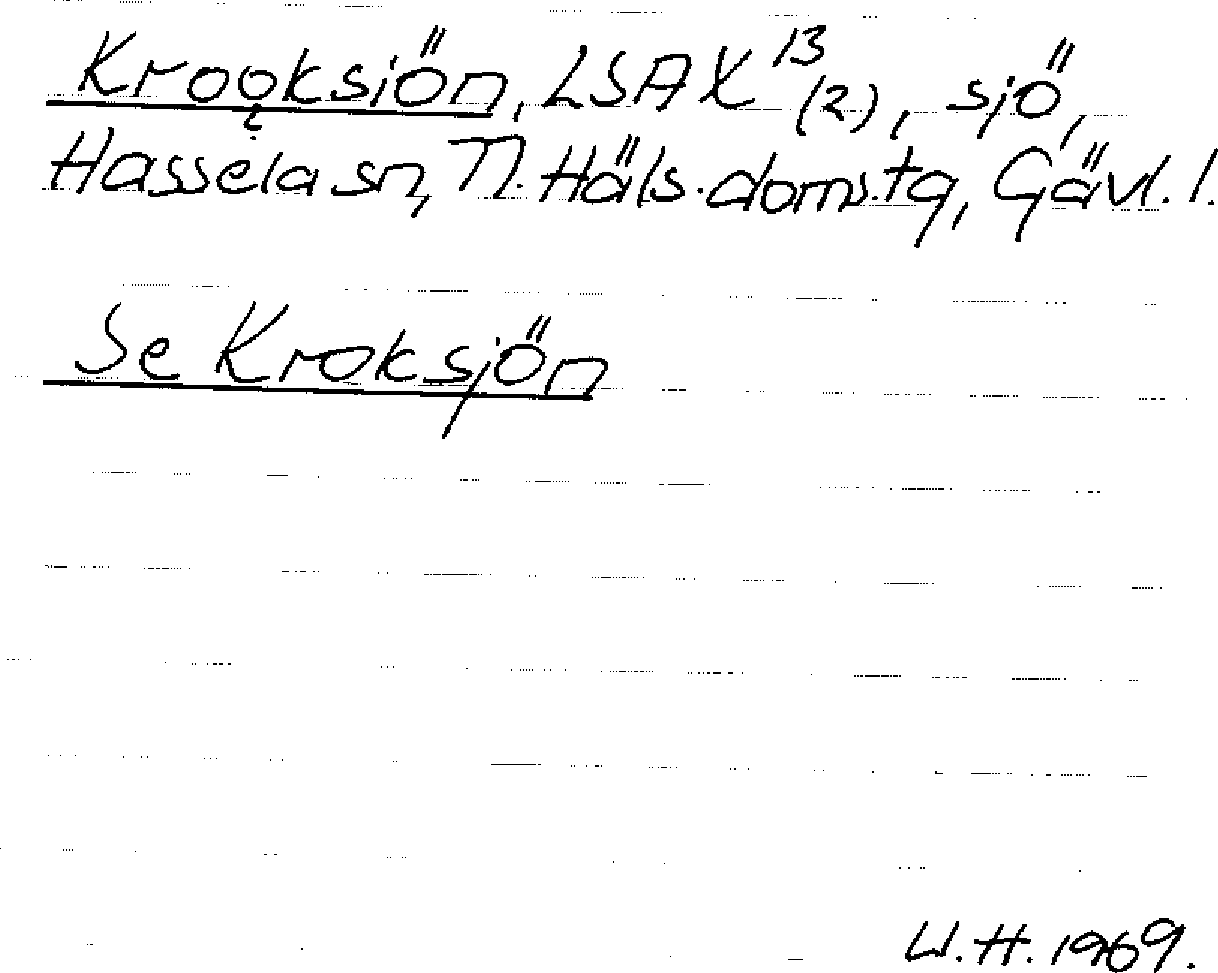 Krooksiön, LSA X 13 (2), sjö,
Hassela sn, N. Häls. doms.tg, Gävl. l.
Se Kroksjön
W.H. 1969.